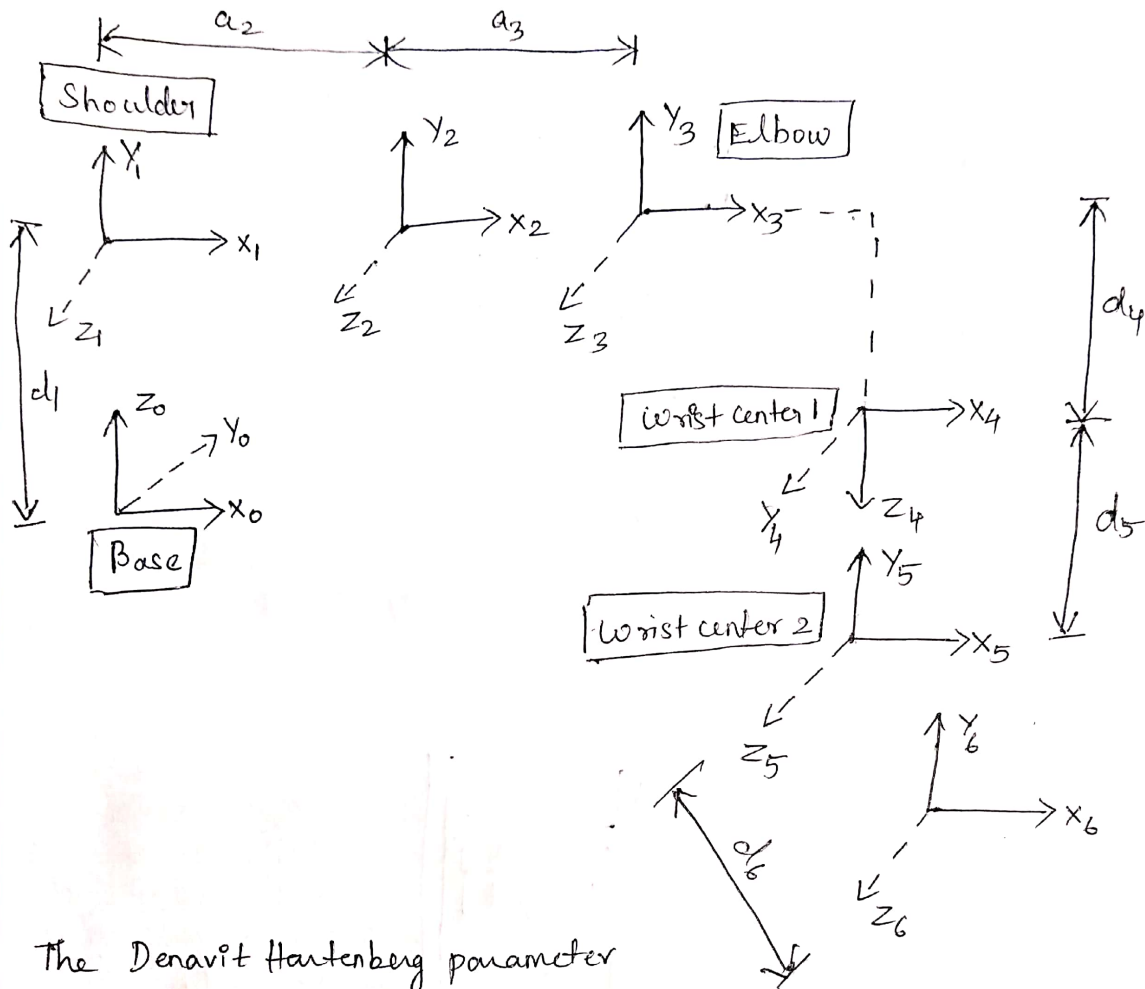 a2 a3
Shoulder
Y1 Y2 Y3 Elbow
X1 X2 X3
Z1 Z2 Z3
d1 d4
Z0 Y0
X0
Base
Wrist center 1 X4
Y4 Z4
d5
Y5
Wrist center 2 X5
Z5
Y6
X6
d6
Z6
The Denavit Hartenberg parameter